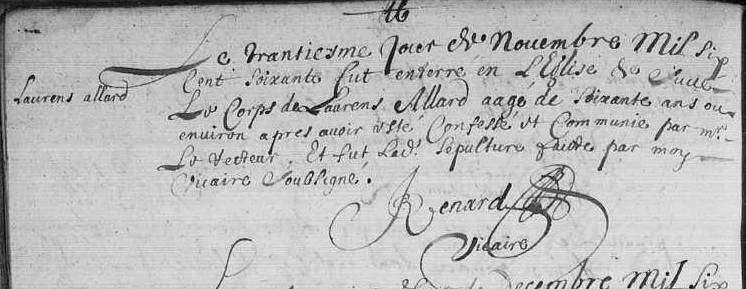 Le trantiesme Jour de Novembre Mil six
Cent Soixante fut enterré en L'Eglise de
Laurens allard
Le Corps de Laurens Allard aagé de Soixante ans ou
environ apres avoir esté Confessé et Communie par mr
Le recteur. Et fut Lad. sepulture faicte par moy
Vicaire Soubsigné.
Renard
Vicaire
decembre Mil six